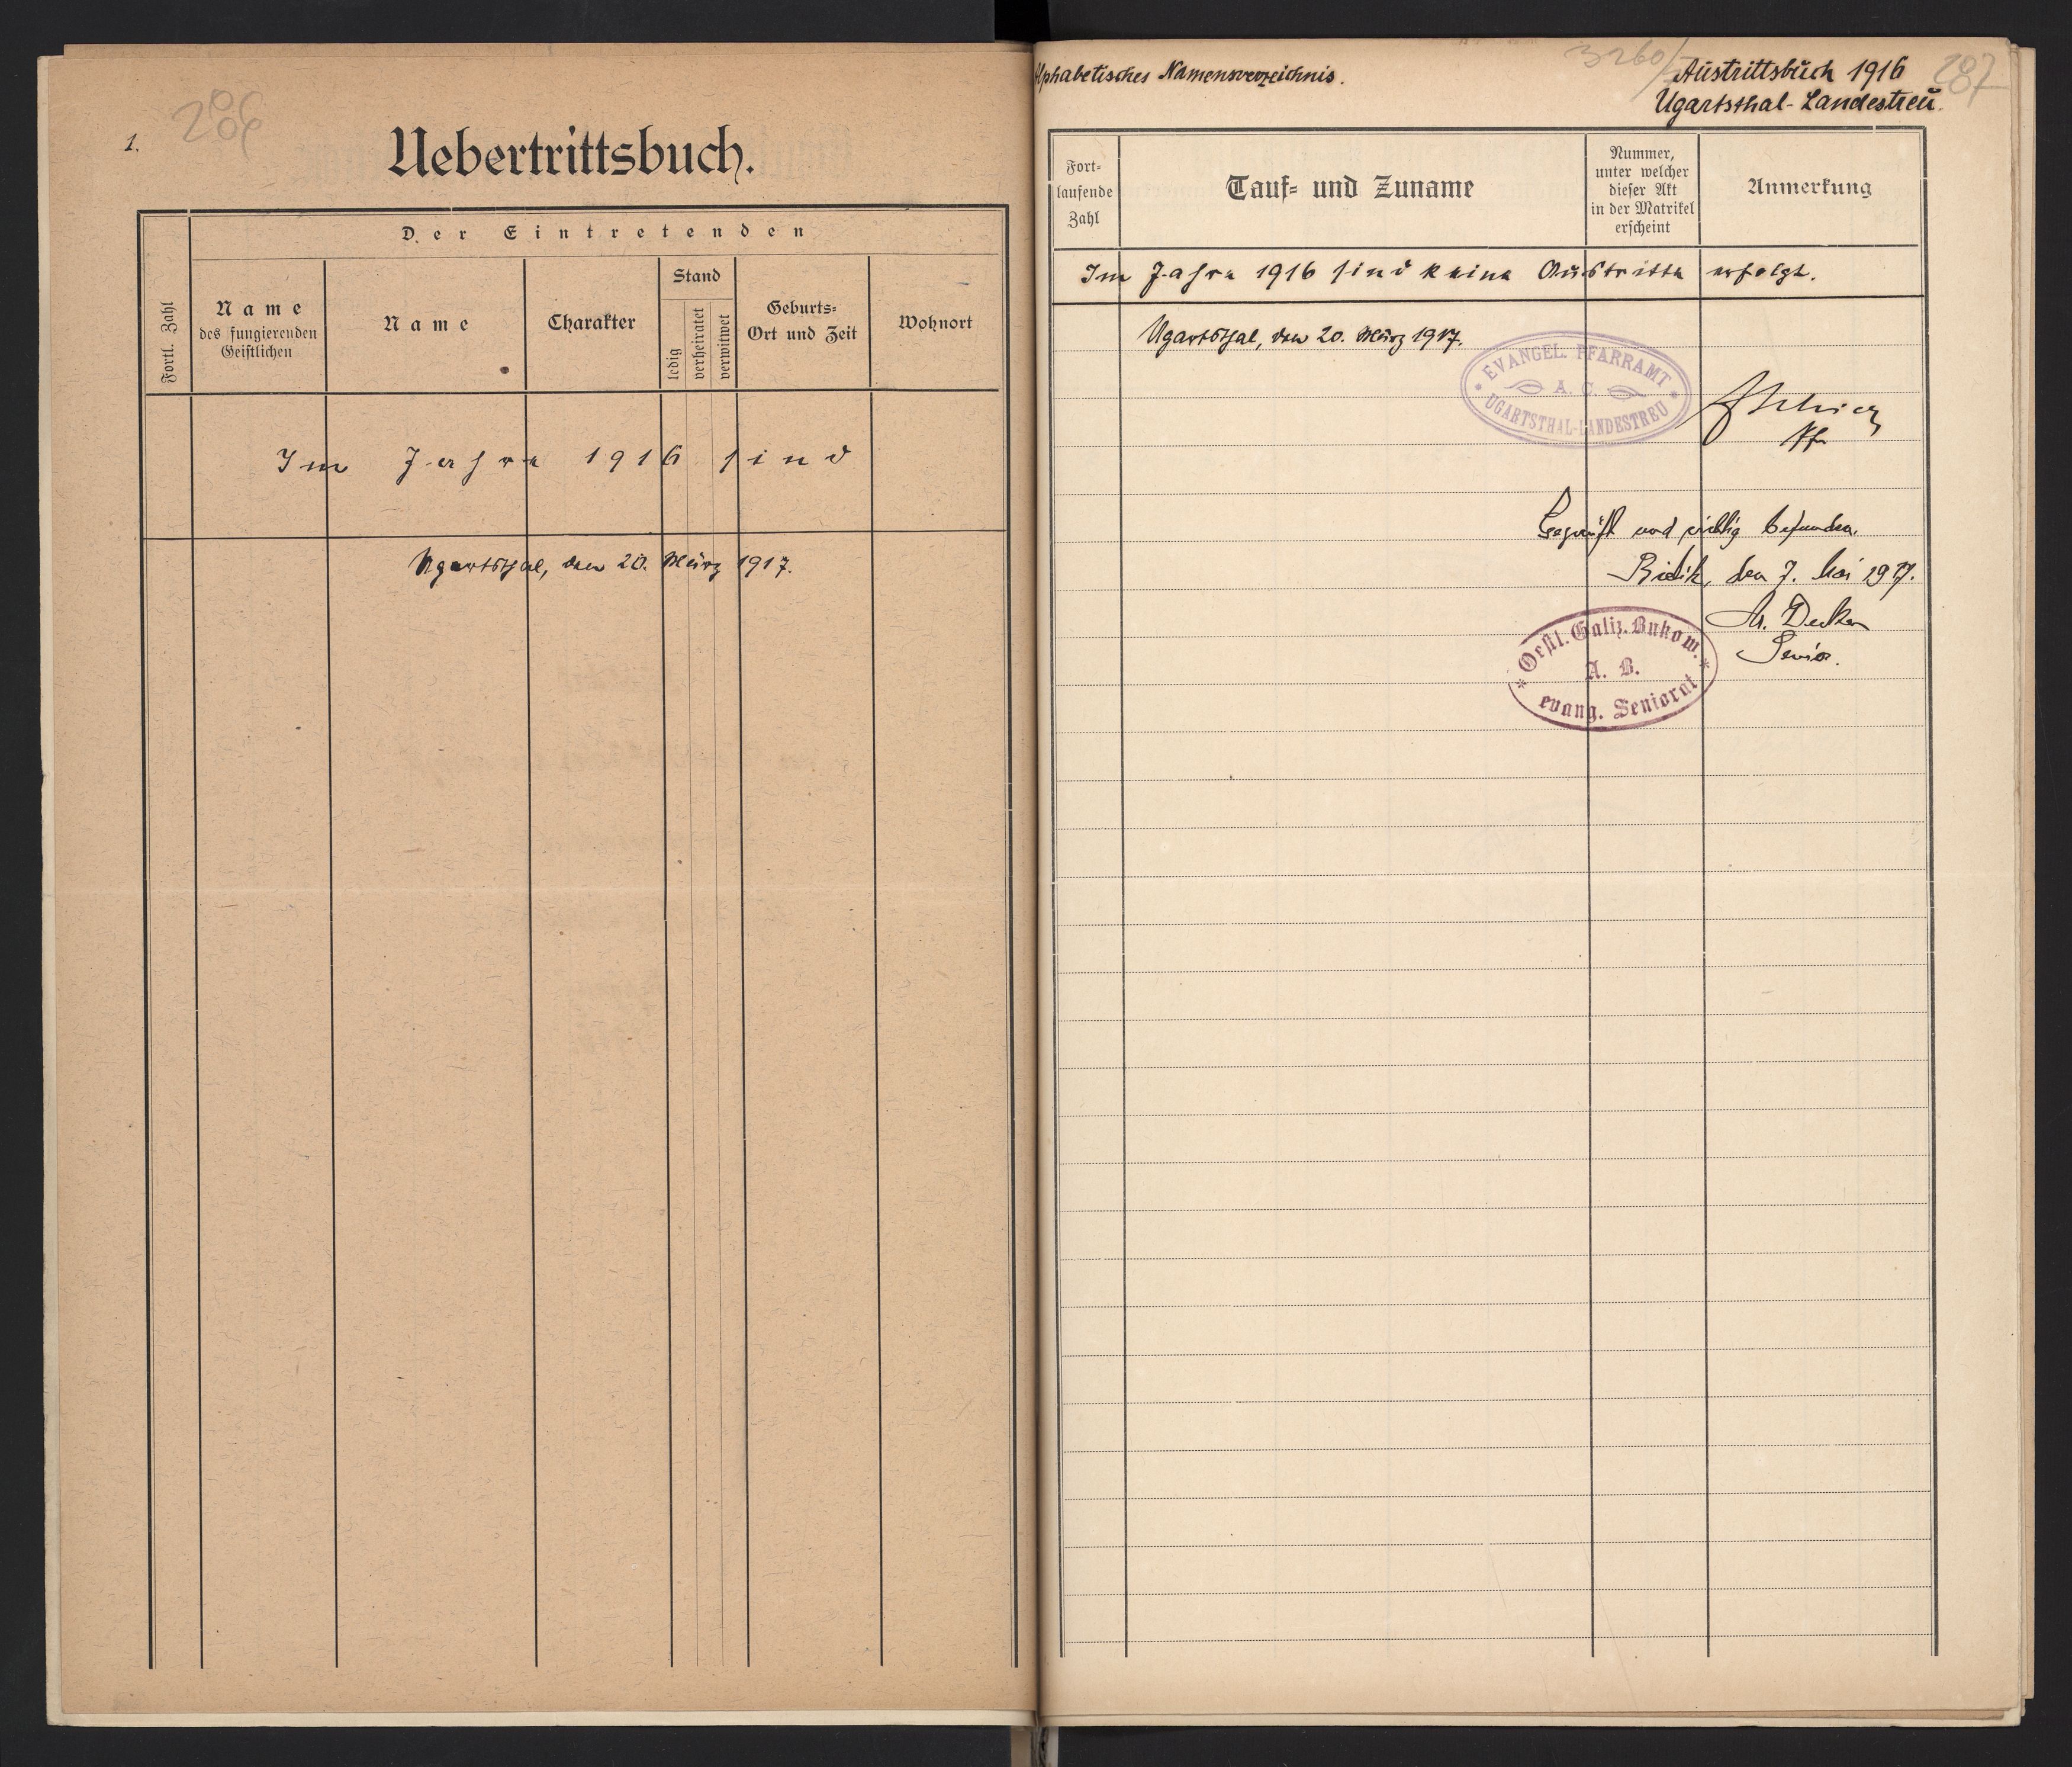 286
1.
Uebertrittsbuch.
Der Eintretenden
Fortl. Zahl
Name
des fungierenden
Geistlichen
Name
Charakter
Stand
ledig
verheiratet
verwitwet
Geburts-
Ort und Zeit
Wohnort
Im Jahre 1916 sind
Ugartsthal, den 20. März 1917.
Alphabetisches Namensverzeichnis.
3260/
Austrittsbuch 1916
287
Ugartsthal-Landestreu.
Fort-
laufende
Zahl
Tauf- und Zuname
Nummer,
unter welcher
dieser Akt
in der Matrikel
erscheint
Anmerkung
Im Jahre 1916 sind keine Austritte erfolgt.
Ugartsthal, den 20. März 1917.
EVANGEL. PFARRAMT
A. C.
UGARTSTHAL-LANDESTREU
Pfr
Geprüft und richtig befunden.
den 7. Mai 1917.
Decker
Senior.
Oestl. Galiz. Bukow.
A. B.
evang. Seniorat